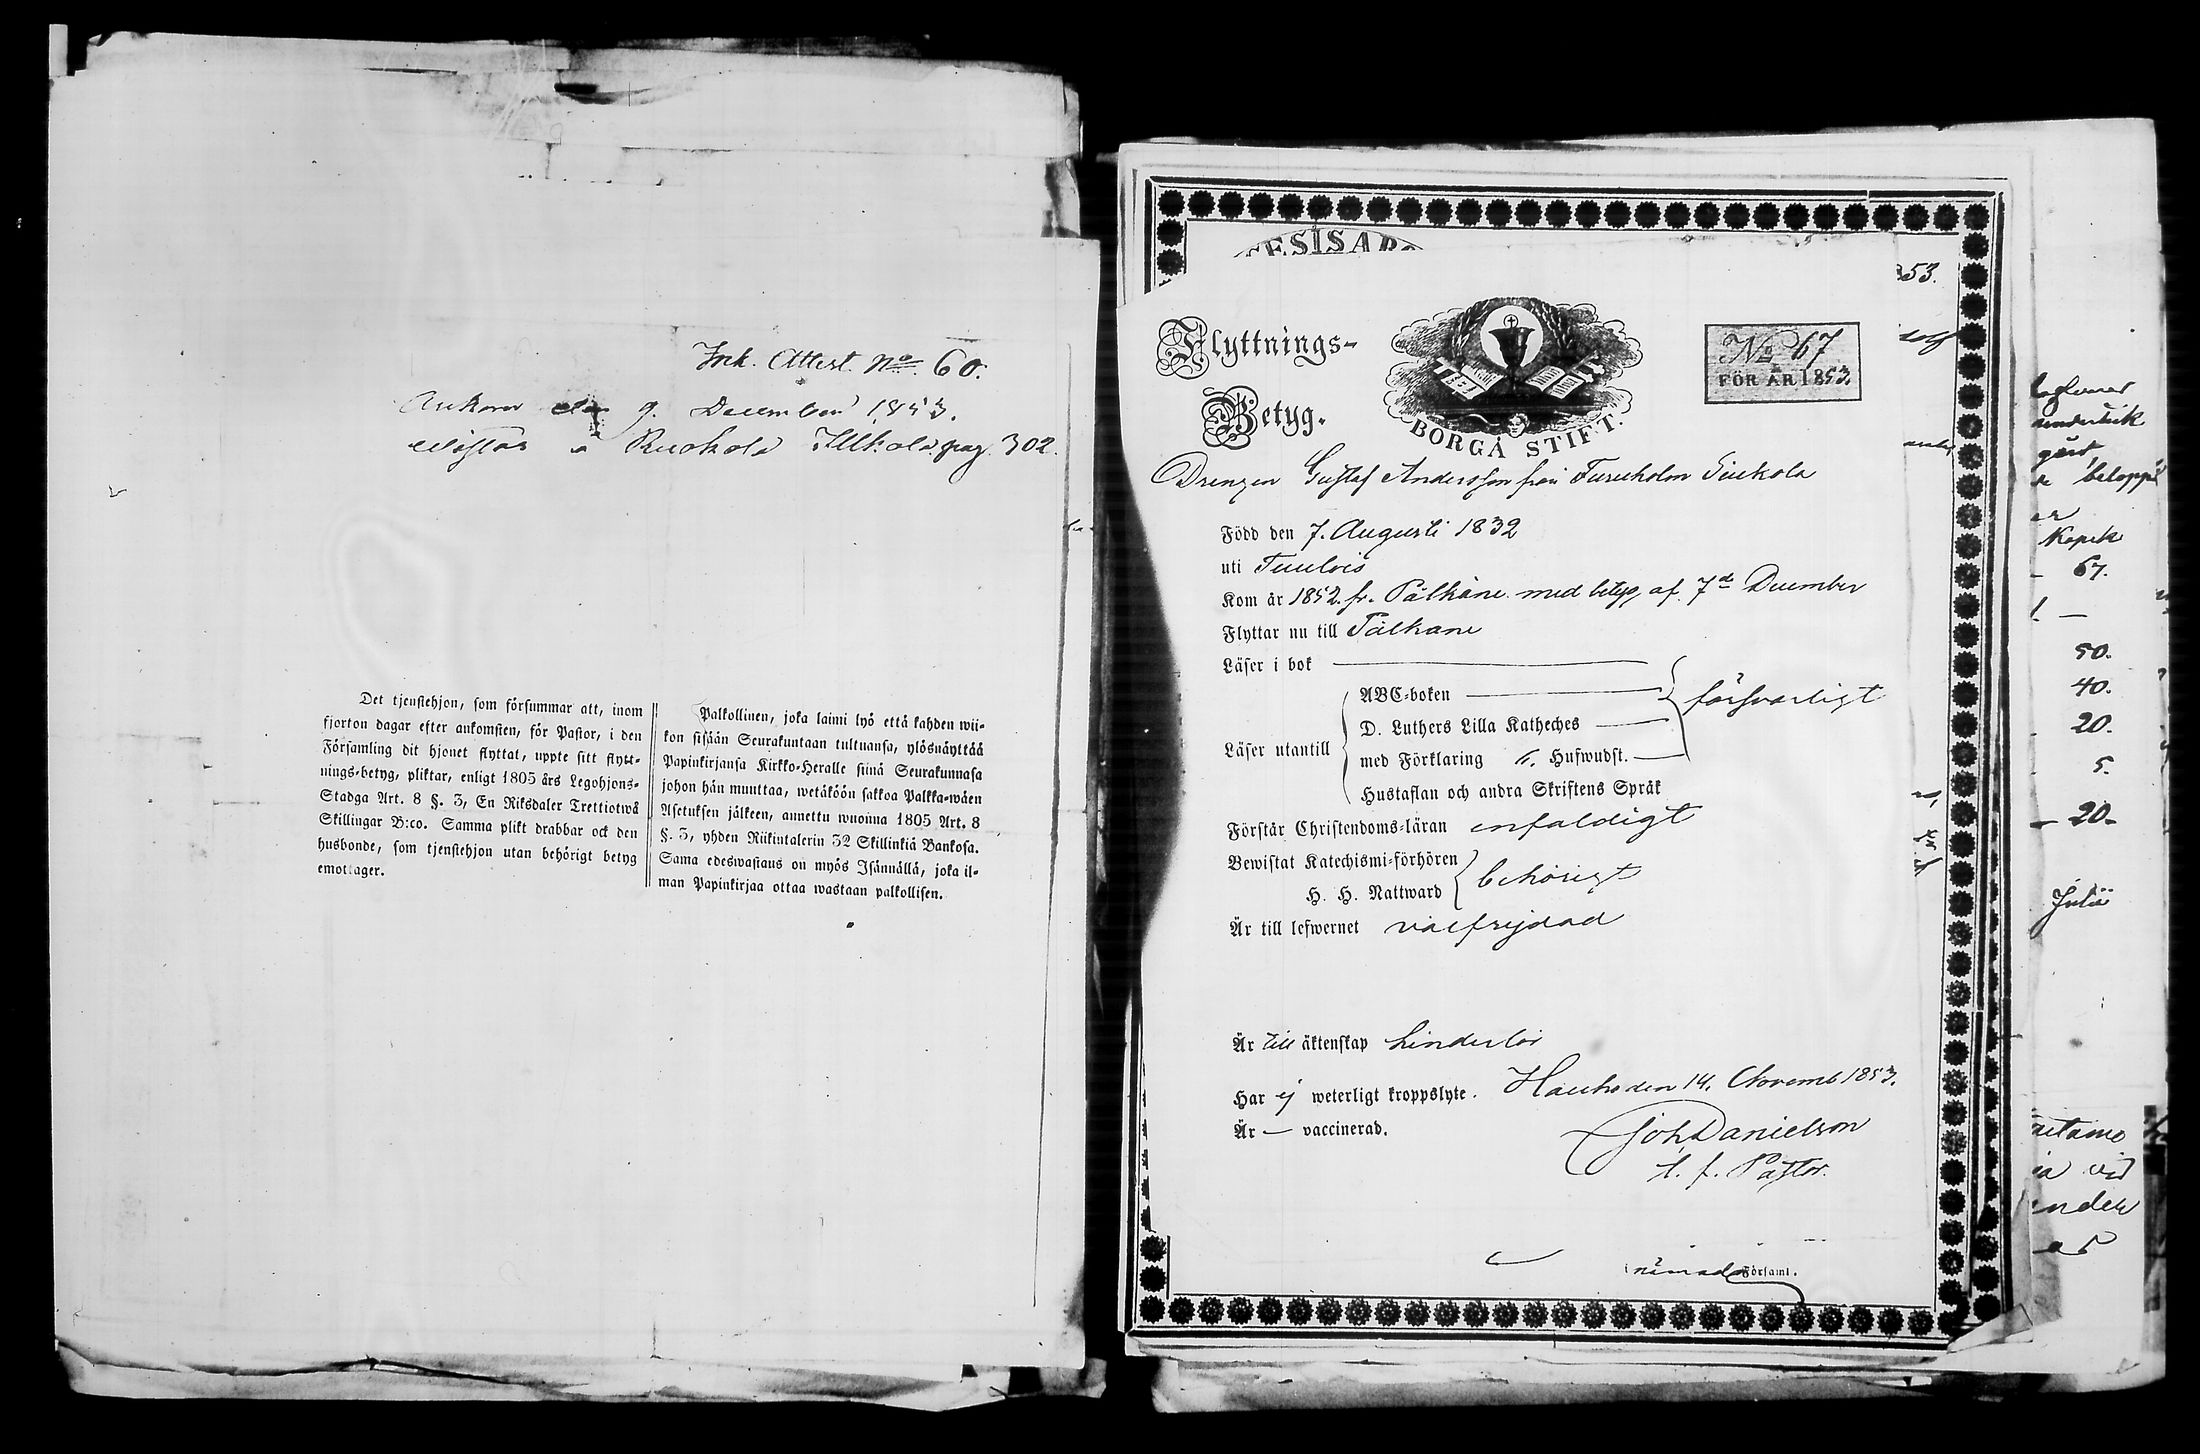 Ink. Attest. No 60.
Ankom den 9. December 1853.
wistas a Ruokola Illkola pag. 302.
Det tjenstehjon, som försummar att, inom
fjorton dagar efter ankomsten, för Pastor, i den
Församling dit hjonet flyttat, uppte sitt flytt-
nings-betyg, pliktar, enligt 1805 års Legohjons-
Stadga Art. 8 §. 3, En Riksdaler Trettiotwå
Skillingar B:co. Samma plikt drabbar ock den
husbonde, som tjenstehjon utan behörigt betyg
emottager.
Palkollinen, joka laimi lyö että kahden wii-
kon sisään Seurakuntaan tultuansa, ylösnäyttää
Papinkirjansa Kirkko-Heralle siinä Seurakunnasa
johon hän muuttaa, wetäköön sakkoa Palkka-wäen
Asetuksen jälkeen, annettu wuonna 1805 Art. 8
§. 3, yhden Riikintalerin 32 Skillinkiä Bankosa.
Sama edeswastaus on myös Isännällä, joka il-
man Papinkirjaa ottaa wastaan palkollisen.
53.
Flyttnings-
Betyg.
BORGÅ STIFT.
No 67
FÖR ÅR 1853.
Drengen Gustaf Andersson från Turuholm Sinkola
Född den 7. Augusti 1832
uti Tuulois
Kom år 1852. fr. Pälkäne med betyg af 7d December
Flyttar nu till Pälkäne
Läser i bok
Läser utantill
ABC-boken
D. Luthers Lilla Katheches
med Förklaring Hufwudst.
Hustaflan och andra Skriftens Språk
försvarligt
Förstår Christendoms-läran enfaldigt
Bewistat Katechismi-förhören
H. H. Nattward
behörigt
Är till lefwernet välfrejdad
Är till äktenskap hinderlös
Har ej weterligt kroppslyte. Hauho den 14. Novemb 1853.
Är — vaccinerad.
Joh Danielson
t. f. Pastor.
i nämnda Församl.
beloppet
Kopek
67.
1. —
50.
40.
20.
5.
20
Julii